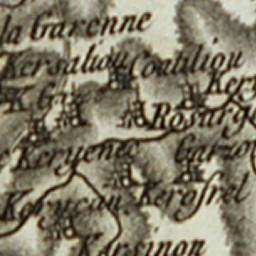 la Garenne
Kersaliou
Coatiliou
Ker
K. Ga
Rosarg
Keryenec
Garzo
Kerosrel
Kerycan
Kersinon